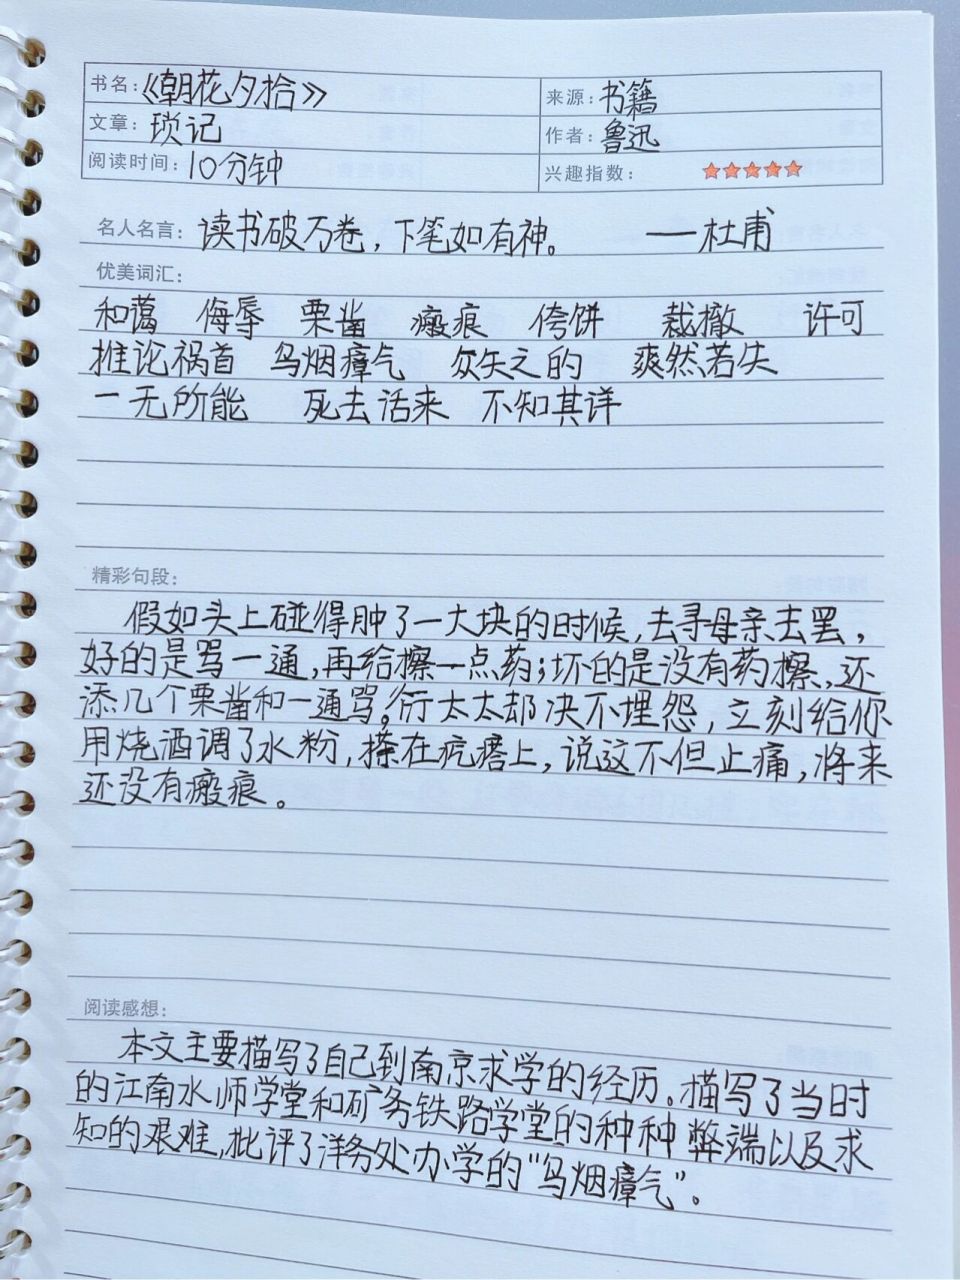 书名:《朝花夕拾》 来源:书籍
文章:琐记 作者:鲁迅
阅读时间:10分钟 兴趣指数:
名人名言:读书破万卷,下笔如有神。 ——杜甫
优美词汇:
和蔼 侮辱 栗凿 瘢痕 侉饼 裁撤 许可
推论祸首 乌烟瘴气 众矢之的 爽然若失
一无所能 死去活来 不知其详
精彩句段:
假如头上碰得肿了一大块的时候,去寻母亲去罢,
好的是骂一通,再给擦一点药;坏的是没有药擦,还
添几个栗凿和一通骂。衍太太却决不埋怨,立刻给你
用烧酒调了水粉,搽在疙瘩上,说这不但止痛,将来
还没有瘢痕。
阅读感想:
本文主要描写了自己到南京求学的经历。描写了当时
的江南水师学堂和矿务铁路学堂的种种弊端以及求
知的艰难,批评了洋务处办学的“乌烟瘴气”。